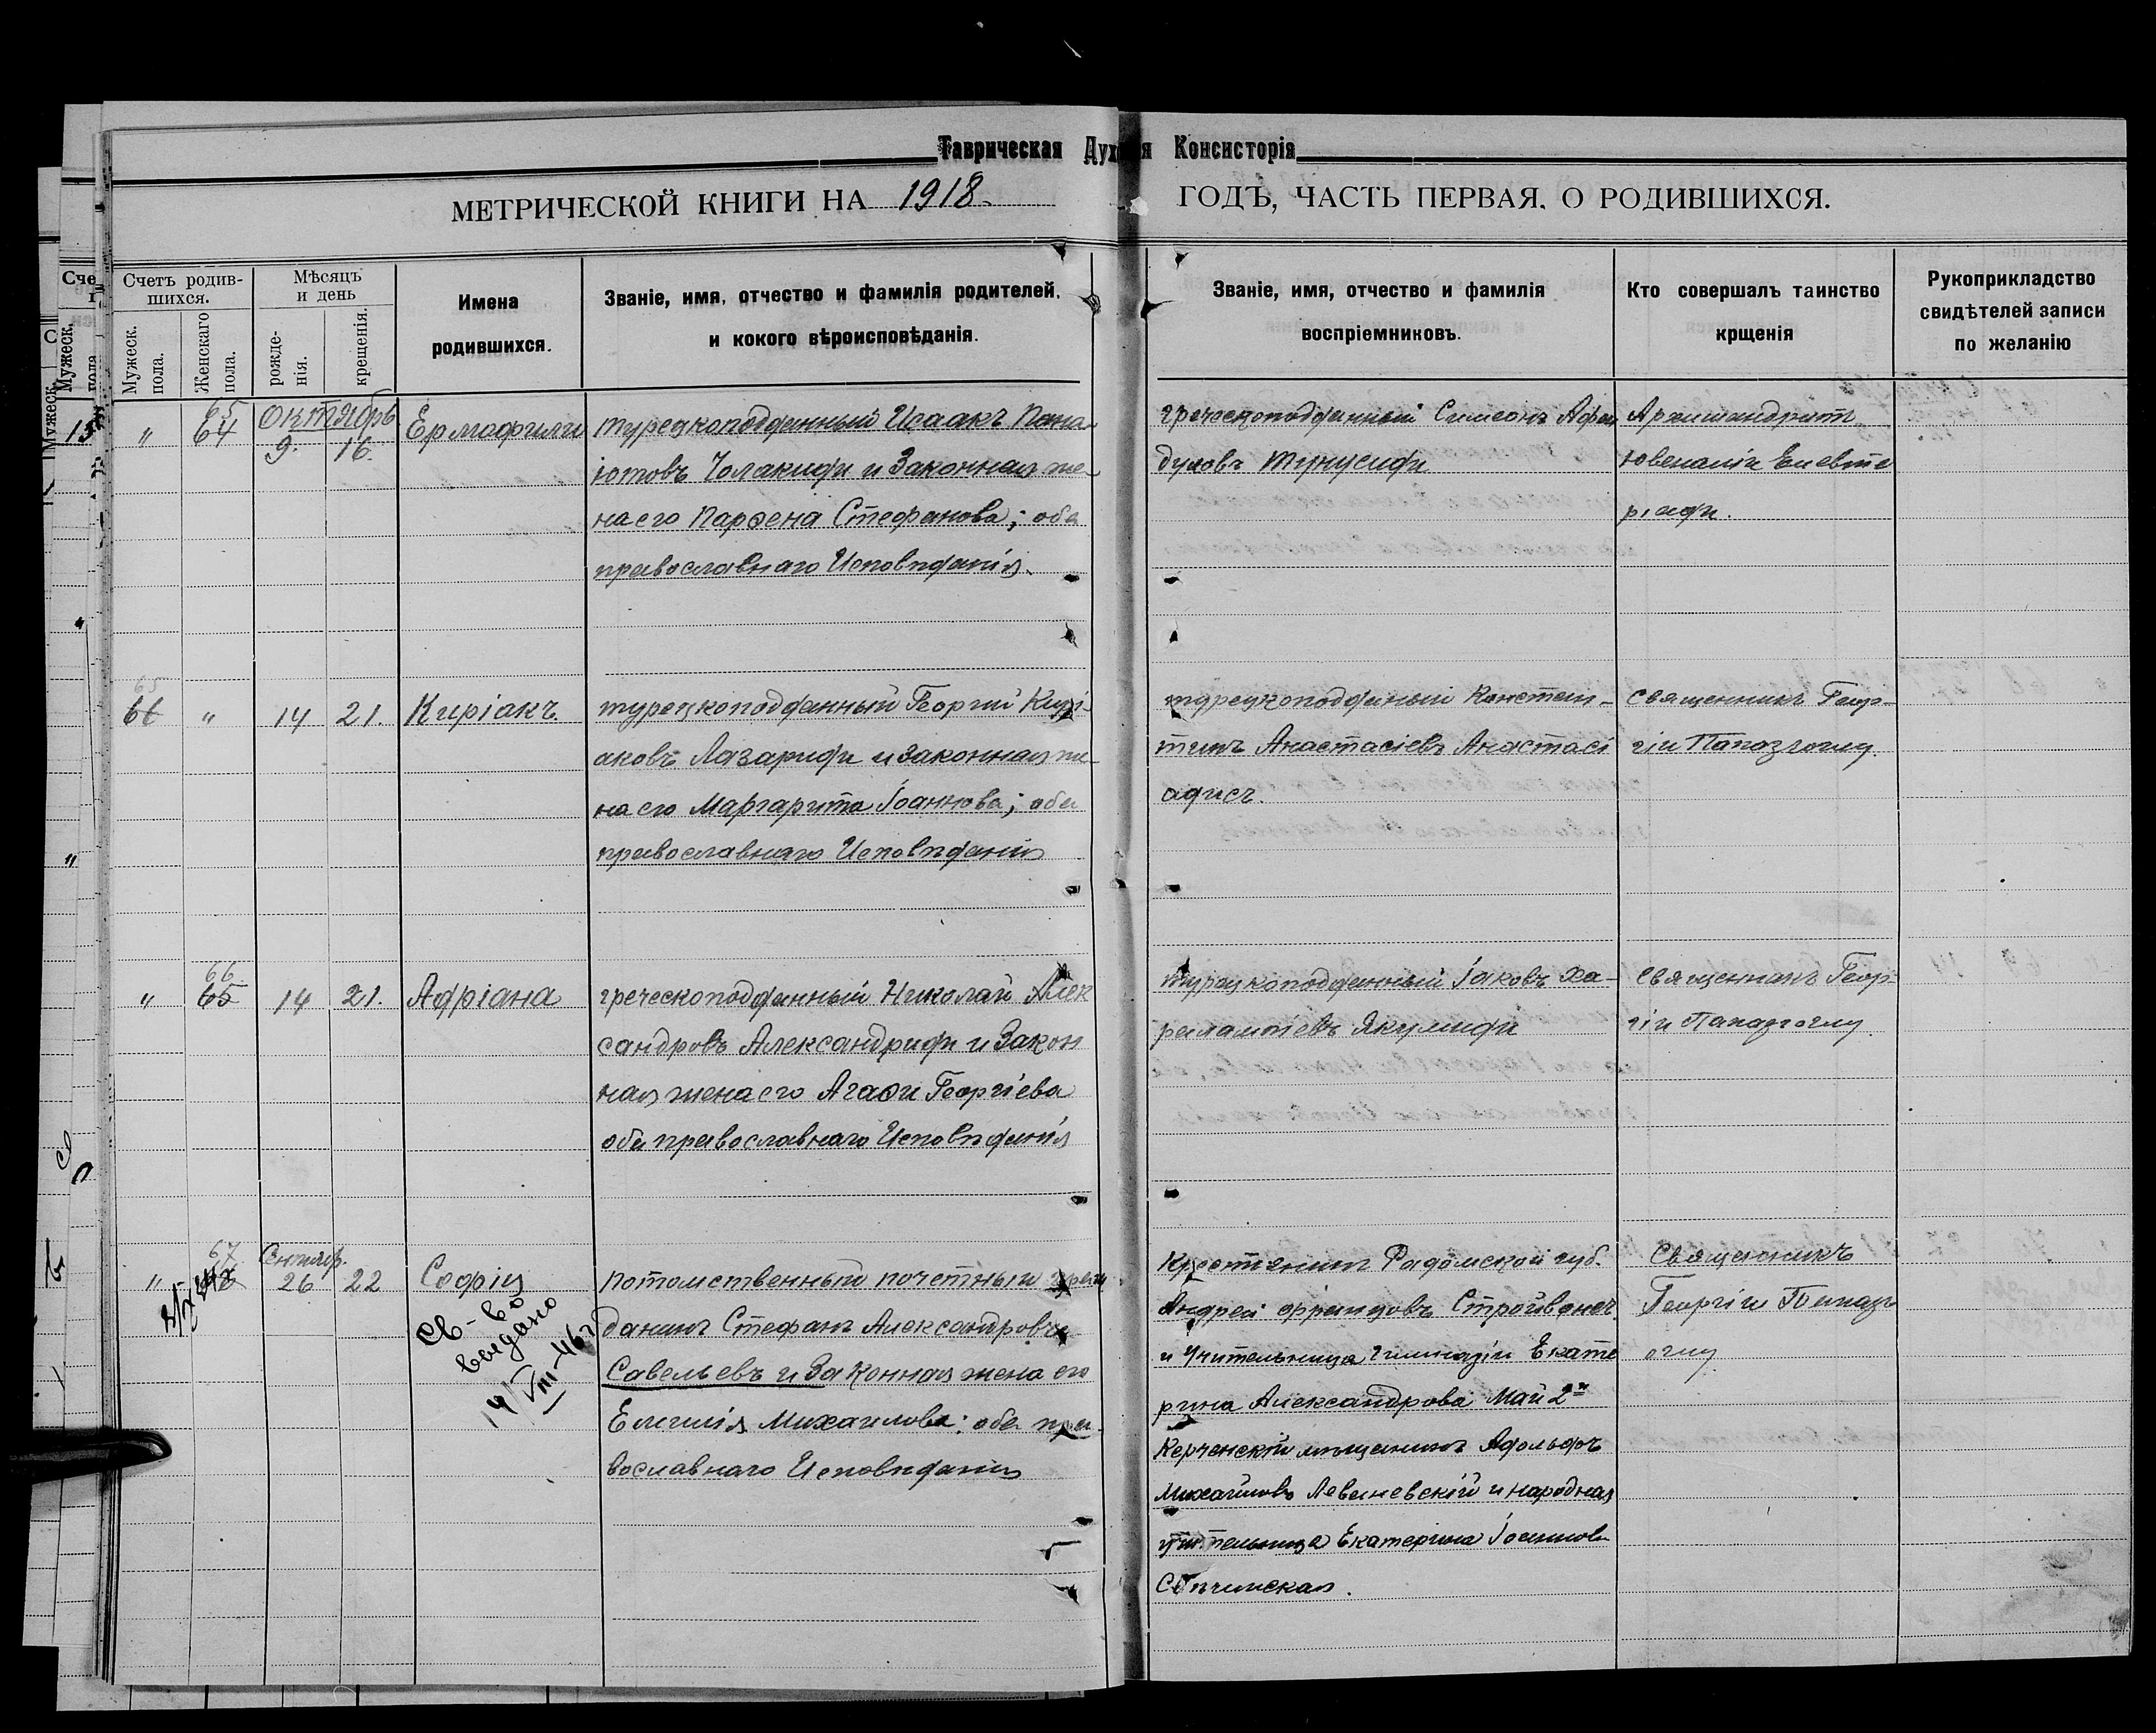 Таврическая Духовная Консисторія
МЕТРИЧЕСКОЙ КНИГИ НА 1918 ГОДЪ, ЧАСТЬ ПЕРВАЯ. О РОДИВШИХСЯ.
Счетъ родив-
шихся.
Мужеск.
пола.
Женскаго
пола.
Мѣсяцъ
и день
рожде-
нія.
крещенія.
Имена
родившихся.
Званіе, имя, отчество и фамилія родителей,
и кокого вѣроисповѣданія.
Званіе, имя, отчество и фамилія
воспріемниковъ.
Кто совершалъ таинство
крщенія
Рукоприкладство
свидѣтелей записи
по желанію
" 65 64 Октябрь
9. 16.
Ермофили
турецкоподданный Исаакъ Пана-
іотовъ Чолакиди и Законная же-
на его Парѳена Стефанова; оба
православнаго Исповѣданія.
греческоподданный Симеонъ
Архимандритъ
Ювеналій Елевте
ріади.
65 66 " 14 21. Киріакъ
турецкоподданный Георгій Кирі-
аковъ Лазариди и законная же-
на его Маргарита Іоаннова; оба
православнаго Исповѣданія
турецкоподданый Констан-
тинъ Анастасіевъ Анастасі
адисъ.
священникъ Геор-
гій Папазъоглу.
" 66 65 14 21. Адріана
греческоподданный Николай Алек
сандровъ Александриди и Закон
ная жена его Агаѳи Георгіева
оба православнаго Исповѣданія
турецкоподданный Іаковъ Ха-
ралампіевъ Якумиди
Священникъ Геор-
гій Папазъоглу.
" 67 Сентябр.
26 22 Софія
Св-во
выдано
14/VIII-46г
потомственный почетный граж
данинъ Стефанъ Александровъ
Савельевъ и Законная жена его
Емилія Михаилова: оба пра-
вославнаго Исповѣданія
Крестянинъ Радомской губ.
Андрей Францовъ
и Учительница Гимназіи Екате
рина Александрова Май 2й
Керченскій мѣщанинъ Адольфъ
Михайловъ Леваневскій и народная
учительница Екатерина Іоаннов
Священникъ
Георгій Папазъ
оглу